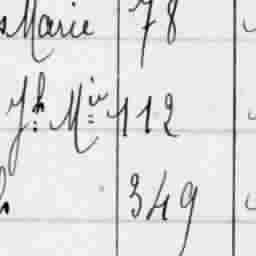 Marie 78
Jh Mie 112
349